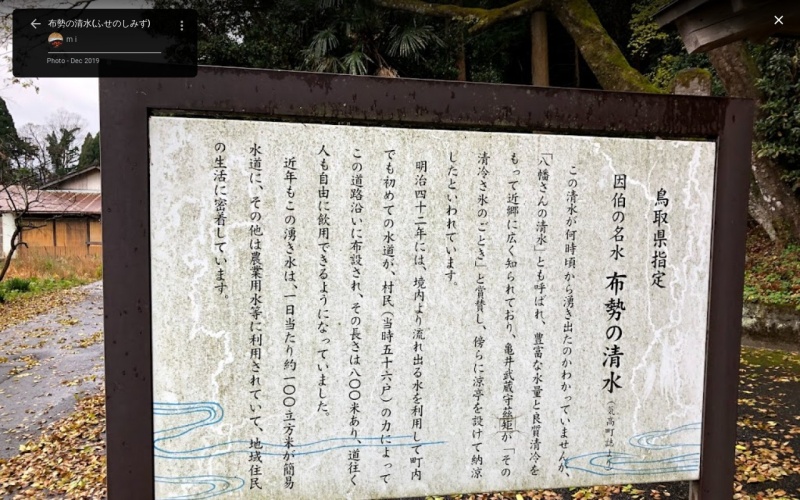 布勢の清水(ふせのしみず)
m i
Photo - Dec 2019
鳥取県指定
因伯の名水 布勢の清水
(気高町誌より)
この清水が何時頃から湧き出たのかわかっていませんが、
「八幡さんの清水」とも呼ばれ、豊富な水量と良質清冷を
もって近郷に広く知られており、亀井武蔵守茲矩が「その
清冷さ氷のごとき」と賞賛し、傍らに涼亭を設けて納涼
したといわれています。
明治四十二年には、境内より流れ出る水を利用して町内
でも初めての水道が、村民(当時五十六戸)の力によって
この道路沿いに布設され、その長さは八〇〇米あり、道往く
人も自由に飲用できるようになっていました。
近年もこの湧き水は、一日当たり約一〇〇立方米が簡易
水道に、その他は農業用水等に利用されていて、地域住民
の生活に密着しています。